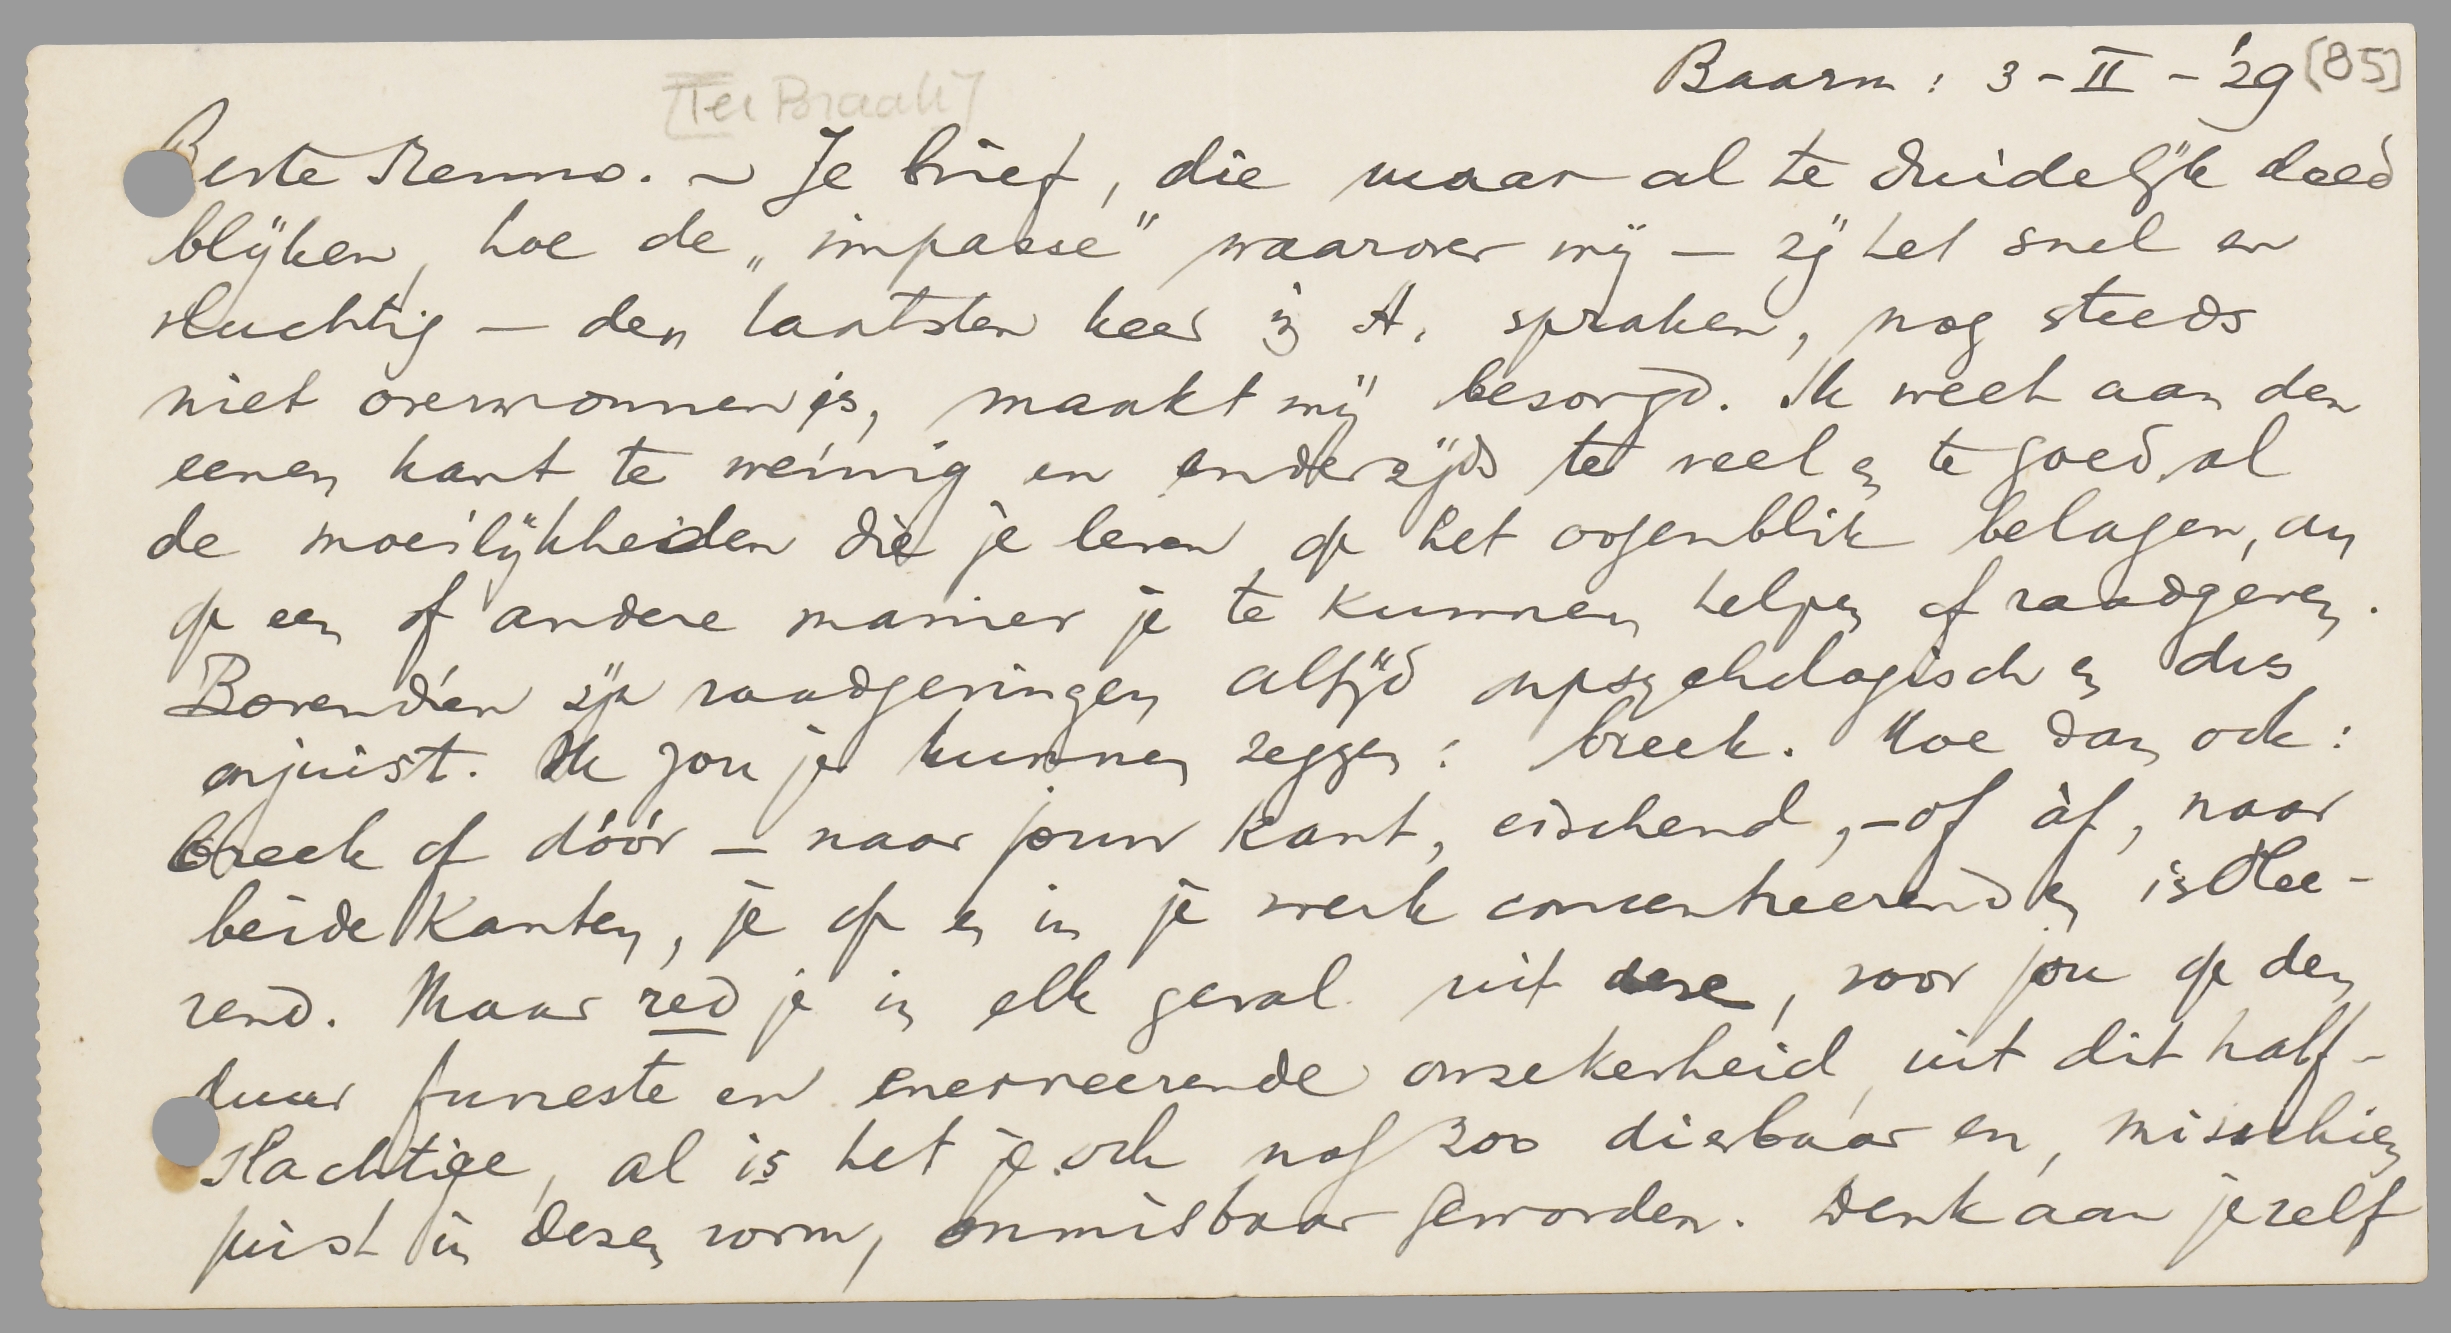 Baarn : 3 - II - '29 [85]
[Ter Braak]
Beste Menno. ~ Je brief, die maar al te duidelijk deed
blijken, hoe de „impasse" waarover wij — zij het snel en
vluchtig — den laatsten keer in A. spraken, nog steeds
niet overwonnen is, maakt mij bezorgd. Ik weet aan den
eenen kant te weinig en anderzijds te veel en te goed al
de moeilijkheden die je leven op het oogenblik belagen, om
op een of andere manier je te kunnen helpen of raadgeven.
Bovendien zijn raadgevingen altijd onpsychologisch en dus
onjuist. Ik zou je kunnen zeggen: breek. Hoe dan ook:
breek of dóór — naar jouw kant, eischend, — of àf, naar
beide kanten, je op en in je werk concentreerend en isolee-
rend. Maar red je in elk geval uit deze, voor jou op den
duur funeste en enerveerende onzekerheid, uit dit half-
slachtige, al is het je ook nog zoo dierbaar en, misschien
juist in dezen vorm, onmisbaar geworden. Denk aan jezelf